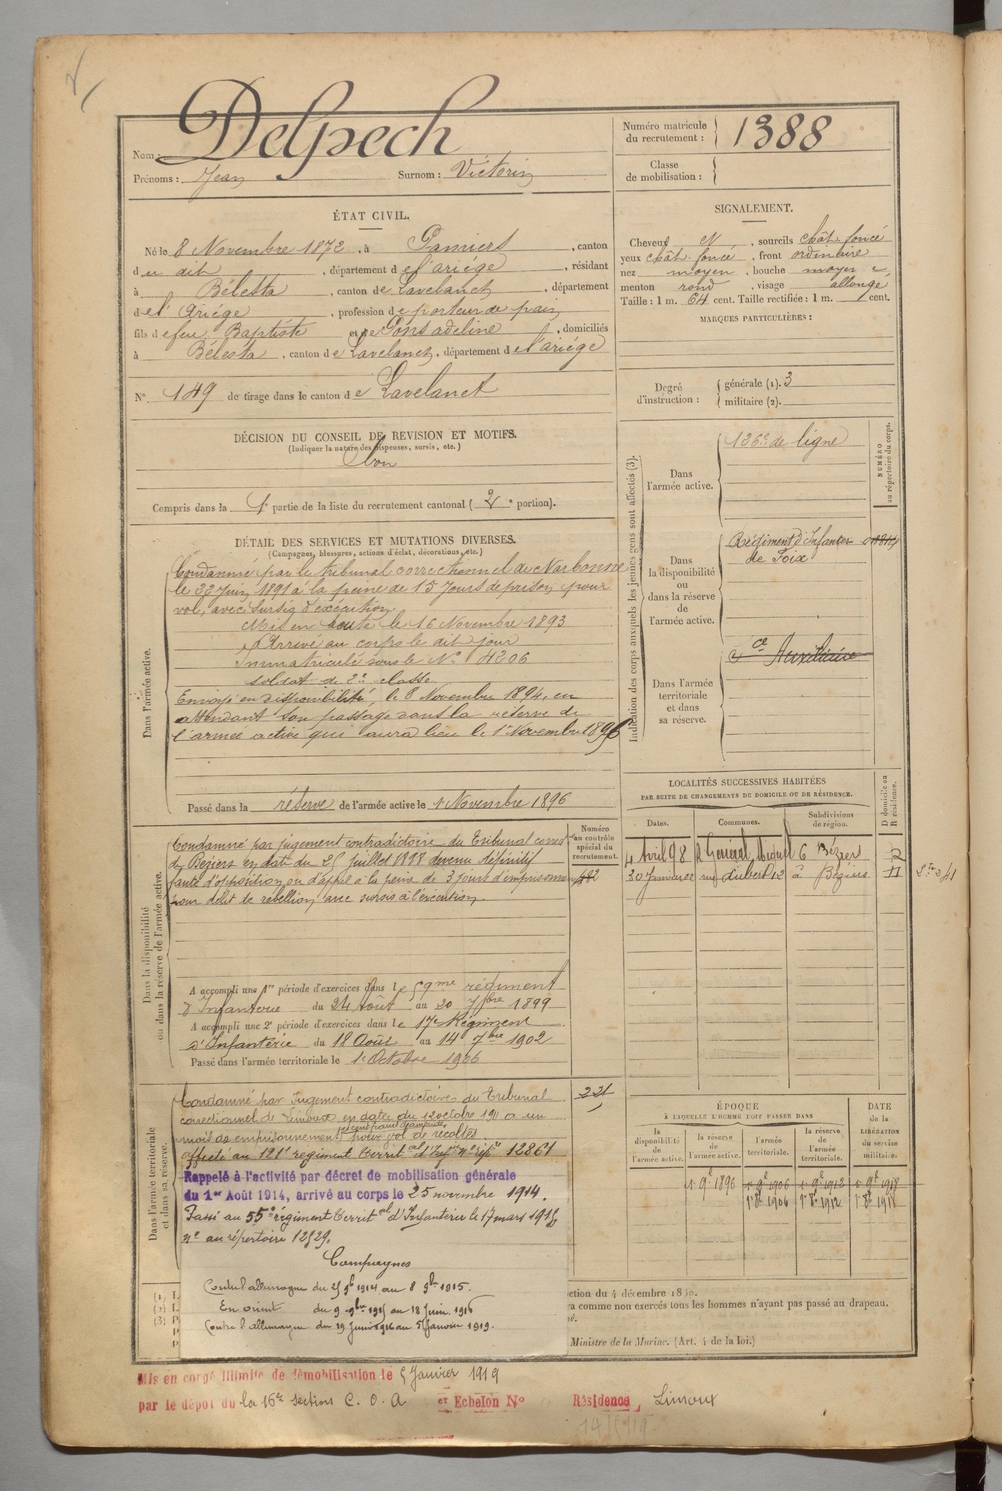 Nom : Delpech
Prénoms : Jean Surnom : Victorin
Numéro matricule du recrutement : 1388
Classe de mobilisation :
ÉTAT CIVIL.
Né le 8 Novembre 1872, à Pamiers, canton
du dit, département de l'ariége, résidant
à Bélesta, canton de Lavelanet, département
de l'Ariége, profession de porteur de pain
fils de feu Baptiste et de Pons adeline, domiciliés
à Bélesta, canton de Lavelanet, département de l'ariége
N° 149 de tirage dans le canton de Lavelanet
SIGNALEMENT.
Cheveux N, sourcils chât. foncé
yeux chât. foncé, front ordinaire
nez moyen, bouche moyenne
menton rond, visage allongé
Taille : 1 m. 64 cent. Taille rectifiée : 1 m. cent.
MARQUES PARTICULIÈRES :
Degré d'instruction : générale (1). 3
militaire (2).
DÉCISION DU CONSEIL DE REVISION ET MOTIFS.
(Indiquer la nature des dispenses, sursis, etc.)
Bon
Compris dans la 1e partie de la liste du recrutement cantonal (2e portion).
DÉTAIL DES SERVICES ET MUTATIONS DIVERSES.
(Campagnes, blessures, actions d'éclat, décorations, etc.)
Dans l'armée active.
Condamné par le tribunal correctionnel de Narbonne
le 22 Juin 1891 à la peine de 15 Jours de prison pour
vol, avec sursis d'exécution
Mis en route le 16 Novembre 1893
Arrivé au corps le dit jour
Immatriculé sous le N° 4206
soldat de 2e classe
Envoyé en disponibilité, le 8 Novembre 1894, en
attendant son passage dans la réserve de
l'armée active qui aura lieu le 1er Novembre 1896
Passé dans la réserve de l'armée active le 1 Novembre 1896
Indication des corps auxquels les jeunes gens sont affectés (3).
NUMÉRO au répertoire du corps.
Dans l'armée active.
126e de ligne
Dans la disponibilité ou dans la réserve de l'armée active.
Régiment d'Infanterie
de Foix
Dans l'armée territoriale et dans sa réserve.
Auxiliaire
LOCALITÉS SUCCESSIVES HABITÉES
PAR SUITE DE CHANGEMENTS DE DOMICILE OU DE RÉSIDENCE.
D domicile ou R résidence.
Dates. Communes. Subdivisions de région.
4 Avril 98 R Général Miquel 6 Bézier
20 Janvier 02 rue 12 à Béziers
Dans la disponibilité ou dans la réserve de l'armée active.
Numéro au contrôle spécial du recrutement.
Condamné par jugement contradictoire du Tribunal correl
de Béziers en date du 25 juillet 1898 devenu définitif
faute d'opposition ou d'appel à la peine de 3 jours d'emprisonnement
pour délit de rebellion avec sursis à l'exécution
A accompli une 1re période d'exercices dans le 59me régiment
d'Infanterie du 24 Août au 20 7bre 1899
A accompli une 2e période d'exercices dans le 17e Régiment
d'Infanterie du 18 Août au 14 7bre 1902
Passé dans l'armée territoriale le 1er Octobre 1906
Dans l'armée territoriale et dans sa réserve.
Condamné par Jugement contradictoire du Tribunal
correctionnel de Limoux en date du 12 octobre 1911 à un
mois de emprisonnement pour vol de récoltes
affecté au 121e régiment Territal d'Infie N° répre 12861
Rappelé à l'activité par décret de mobilisation générale
du 1er Août 1914, arrivé au corps le 25 novembre 1914.
Passé au 55e régiment Territal d'Infanterie le 17 mars 1915
n° au répertoire 12529.
Campagnes
Contre l'allemagne du 25 9b 1914 au 8 9bre 1915.
En orient du 9 9bre 1915 au 18 Juin 1916
Contre l'allemagne du 19 Juin 1916 au 5 Janvier 1919.
ÉPOQUE
À LAQUELLE L'HOMME DOIT PASSER DANS
DATE de la LIBÉRATION du service militaire.
la disponibilité de l'armée active. la réserve de l'armée active. l'armée territoriale. la réserve de l'armée territoriale.
1er 9e 1896 1er 9e 1906 1er 9e 1912 1er 9e 1918
1er 8e 1906 1er 8e 1912 1er 8e 1918
(1) L
(2) L
(3) P
ction du 4 décembre 1890.
ra comme non exercés tous les hommes n'ayant pas passé au drapeau.
Ministre de la Marine. (Art. 4 de la loi.)
Mis en congé illimité de démobilisation le 5 Janvier 1919
par le dépot du la 16e section C. O. A et Echelon N° Résidence Limoux